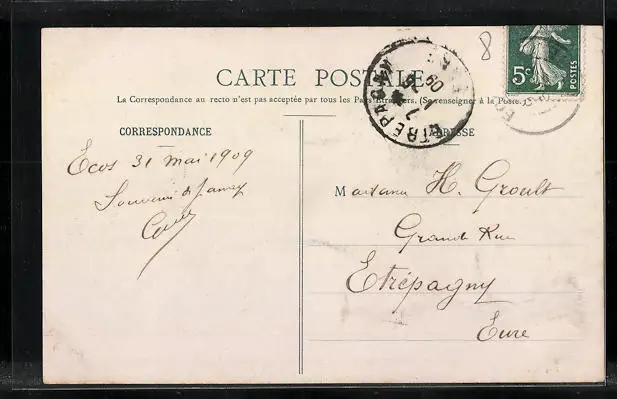 8
5c
POSTES
CARTE POSTALE
ETREPAGNY
09
La Correspondance au recto n'est pas acceptée par tous les Pays Etrangers. (Se renseigner à la Poste.)
CORRESPONDANCE
ADRESSE
Ecos 31 mai 1909
Souvenir de
M H. Groult
Grande Rue
Etrépagny
Eure